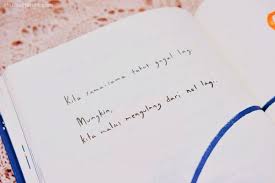 Kita sama-sama takut gagal lag.
Mungkin,
kita malas mengulang dari nol lagi.